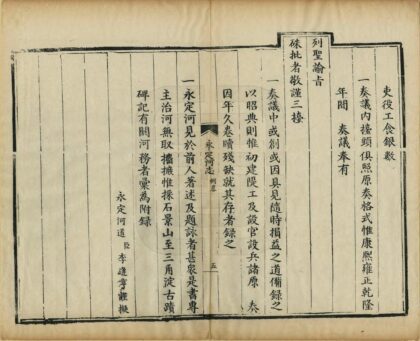 吏役工食銀數
一奏議內擡頭俱照原奏格式惟康熙雍正乾隆
年間　奏議奉有
列聖諭旨
硃批者敬謹三擡
一奏議中或創或因具見隨時損益之道備錄之
以昭典則惟初建隄工及設官設兵諸原　奏
因年久卷牘殘缺就其存者錄之
永定河志　例畧　五
一永定河見於前人著述及題詠者甚衆是書專
主治河無取摭摭惟採石景山至三角淀古蹟
碑記有關河務者彙為附錄
永定河道臣李逢亨謹擬